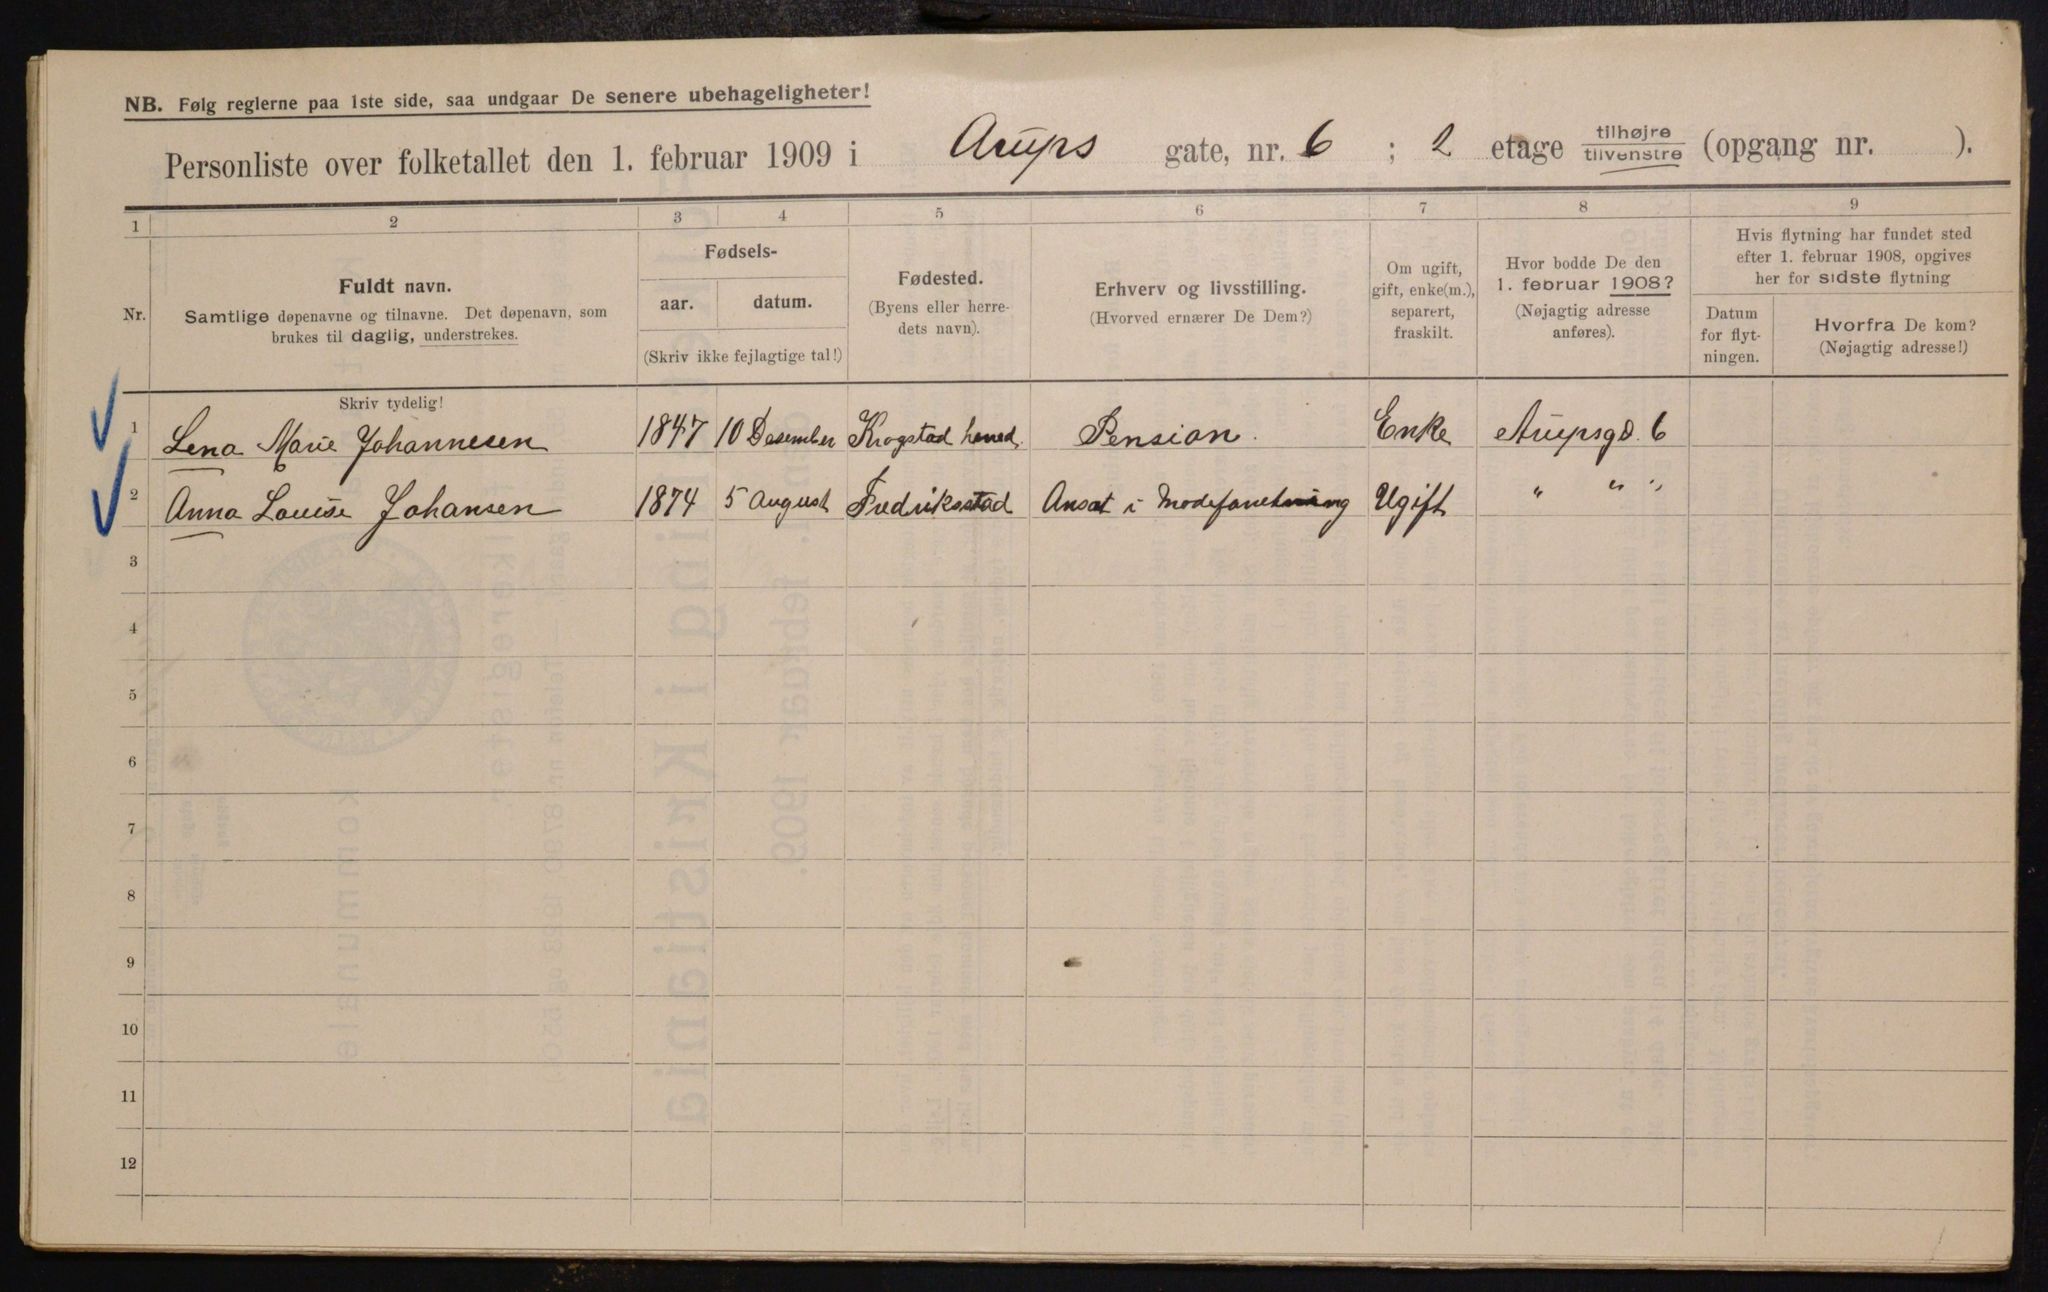 NB. Følg reglerne paa 1ste side, saa undgaar De senere ubehageligheter!
Personliste over folketallet den 1. februar 1909 i Arups gate, nr. 6 ; 2 etage tilhøjre tilvenstre (opgang nr. ).
1 2 3 4 5 6 7 8 9
Nr.
Fuldt navn.
Samtlige døpenavne og tilnavne. Det døpenavn, som
brukes til daglig, understrekes.
Fødsels-
aar. datum.
(Skriv ikke fejlagtige tal!)
Fødested.
(Byens eller herre-
dets navn).
Erhverv og livsstilling.
(Hvorved ernærer De Dem?)
Om ugift,
gift, enke(m.),
separert,
fraskilt.
Hvor bodde De den
1. februar 1908?
(Nøjagtig adresse
anføres).
Hvis flytning har fundet sted
efter 1. februar 1908, opgives
her for sidste flytning
Datum
for flyt-
ningen.
Hvorfra De kom?
(Nøjagtig adresse!)
Skriv tydelig!
1 Lena Marie Johannesen 1847 10 Desember Krogstad herred Pension. Enke Arupsgd. 6
2 Anna Louise Johansen 1874 5 August Fredriksstad Ansat i Modeforretning Ugift " " "
3
4
5
6
7
8
9
10
11
12